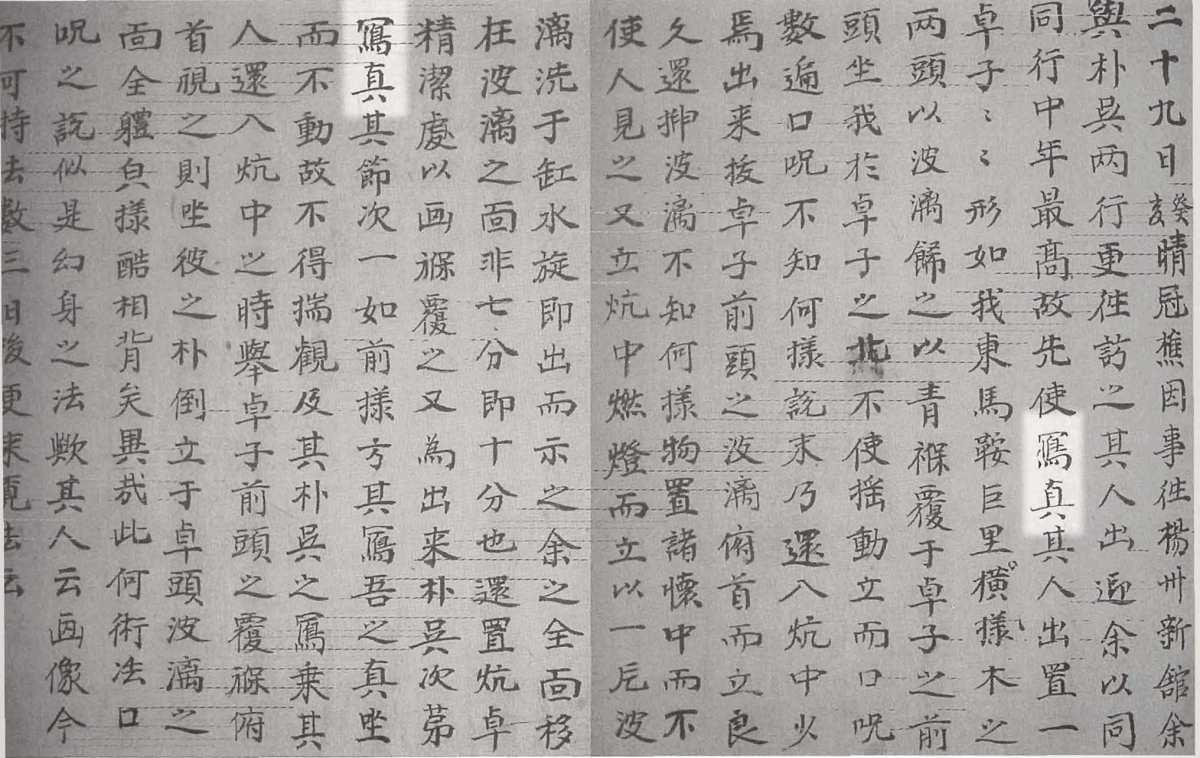 二十九日癸亥晴冠樵因事往楊州新舘余
與朴吳两行更徃訪之其人出迎余以同
同行中年最高故先使寫真其人出置一
卓子〻〻形如我東馬鞍巨里橫樣木之
两頭以波漓餙之以青褓覆于卓子之前
頭坐我於卓子之北不使搖動立而口呪
數遍口呪不知何樣說末乃還入炕中少
焉出来拔卓子前頭之波漓俯首而立良
久還押波漓不知何樣物置諸懷中而不
使人見之又立炕中燃燈而立以一片波
漓洗于缸水旋即出而示之余之全面移
在波漓之面非七分即十分也還置炕卓
精潔處以画褓覆之又為出来朴吳次苐
寫真其節次一如前樣方其寫吾之真坐
而不動故不得揣觀及其朴吳之寫乗其
人還入炕中之時舉卓子前頭之覆褓俯
首視之則坐彼之朴倒立于卓頭波漓之
面全軆皃樣酷相背矣異哉此何術法口
呪之說似是幻身之法歟其人云画像今
不可持去數三日後更来覓去云